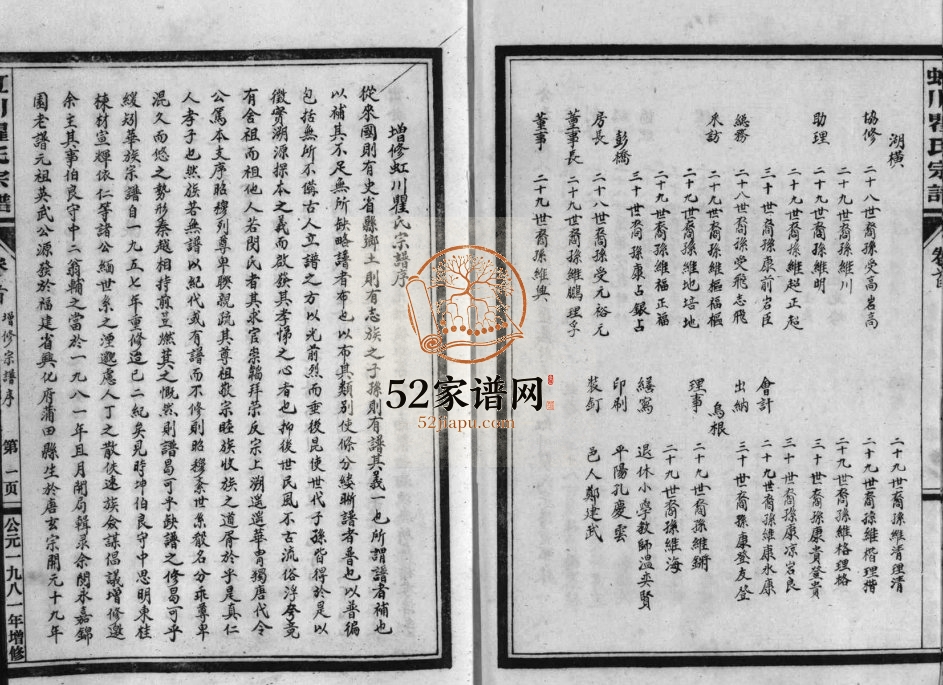 虹川瞿氏宗譜
卷首
湖橫
協修 二十八世裔孫受高岩高
二十九世裔孫維川
助理 二十九世裔孫維明
二十九世裔孫維超正超
三十世裔孫康前岩臣
總務 二十八世裔孫受飛志飛
采訪 二十九世裔孫維樞福樞
二十九世裔孫維地培地
二十九世裔孫維福正福
彭橋 三十世裔孫康占銀占
房長 二十八世裔孫受元裕元
董事長 二十九世裔孫維鵬理孚
董事 二十九世裔孫維輿
二十九世裔孫維清理清
二十九世裔孫維楷理楷
二十九世裔孫維格理格
三十世裔孫康貴登貴
三十世裔孫康涼岩良
會計 二十九世裔孫維康永康
出納 三十世裔孫康登友登
烏根
理事 二十九世裔孫維鏘
二十九世裔孫維海
繕寫 退休小學教師溫奕賢
印刷 平陽孔慶雲
裝釘 邑人鄭建武
增修虹川瞿氏宗譜序
從來國則有史省縣鄉土則有志族之子孫則有譜其義一也所謂譜者補也
以補其不足無所缺略譜者布也以布其類列使條分縷晰譜者普也以普徧
包括無所不備古人立譜之方以光前烈而垂後昆使世代子孫皆得於是以
徵實溯源探本之義而啟發其孝悌之心者也抑後世民風不古流俗浮夸竟
有舍祖而祖他人若閔氏者其求官崇韜拜崇反宗上溯遥遥華胄獨唐代令
公篤本支序昭穆列尊卑聯親疏其尊祖敬宗睦族收族之道胥於乎是真仁
人孝子也然族若無譜以紀代或有譜而不修則昭穆紊世系散名分乖尊卑
混久而悠之勢形秦越相持煎豈燃其之慨然則譜曷可乎缺譜之修曷可乎
緩矧華族宗譜自一九五七年重修迄已二紀矣兄時坤伯良守中思明東桂
棟材宣輝依仁等諸公緬世系之湮邈慮人丁之散佚速族僉謀倡議增修邀
余主其事伯良守中二翁輔之當於一九八一年且月開局輯录余閱永嘉錦
園老譜元祖英武公源發於福建省興化府蒲田縣生於唐玄宗開元十九年
虹川瞿氏宗譜
卷首
增修宗譜序
第一页
公元一九八一年增修
52家谱网
52jiapu.com